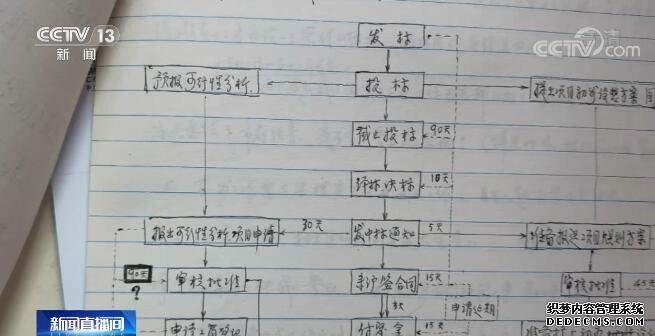 CCTV 13
新闻
CCTV.com
发标
预报可行性分析
投标
提出项目初步设想方案
截止投标
90天
评标决标
10天
报出可行性分析、项目申请
30天
发中标通知
5天
准备报送项目规划方案
90天
?
审核批准
来沪签合同
15天
审核批准
45天
3天
申请延期
付签金
15天
新闻直播间
织梦内容管理系统